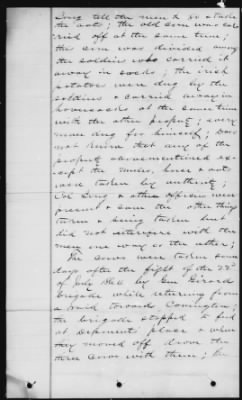 Long tell the men to so take
the oats; the old corn was car
ried off at the same time;
the corn was divided among
the soldiers who carried it
away in sacks; the irish
potatoes were dug by the
soldiers & carried away in
haversacks at the same time
with the other property; every
man dug for himself; Does
not know that any of the
property above mentioned ex-
cept the mules, horse & oats
were taken by authority;
Col Long & other officers were
present & saw the other things
taken & being taken but
did not interfere with the
men one way or the other;
The cows were taken some
days after the fight of the 22d
of July 1864 by Gen Girard
brigade while returning from
a raid toward Covington;
the brigade stopped to feed
at Deponents place & when
they moved off drove the
three cows with them; he